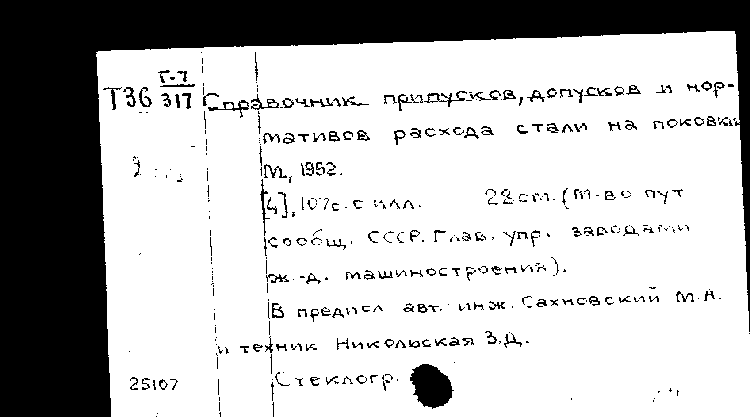 Г-7
Т36 317 Справочник припусков, допусков и нор-
мативов расхода стали на поковки
М, 1952.
[4], 107с. с илл. 28 см. (М-во пут
сообщ. СССР. Глав. упр. заводами
ж.-д. машиностроения).
В предисл авт. инж. Сахновский М.А.
и техник Никольская З.Д.
25107 Стеклогр.